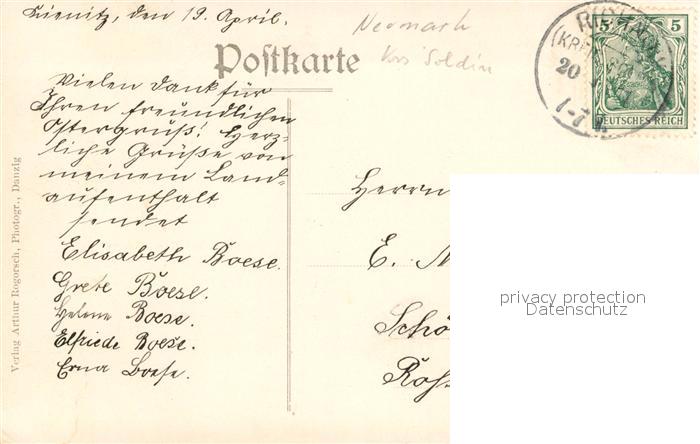 Kienitz, den 19. April.
Neumark
Krs Soldin
Postkarte
Vielen Dank für
Ihren freundlichen
Ostergruß! Herz-
liche Grüße von
meinem Land-
aufenthalt
sendet
Elisabeth Boese.
Grete Boese.
Helene Boese.
Elfriede Boese.
Erna Boese.
Verlag Arthur Rogorsch, Photogr., Danzig
5 5
DEUTSCHES REICH
20
1-7
Herrn
E.
privacy protection
Datenschutz